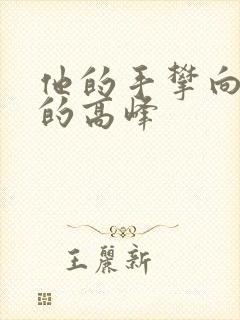 他的手攀向
的高峰
王丽新